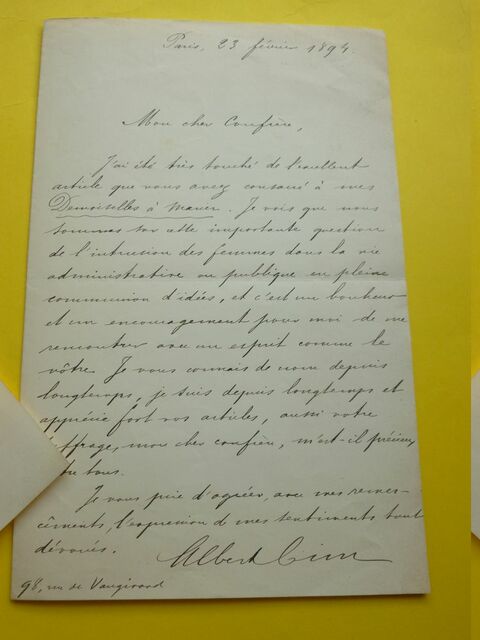 Paris, 23 février 1894.
Mon cher Confrère,
J'ai été très touché de l'excellent
article que vous avez consacré à mes
Demoiselles à marier. Je vois que nous
sommes sur cette importante question
de l'intrusion des femmes dans la vie
administrative ou publique en pleine
communion d'idées, et c'est un bonheur
et un encouragement pour moi de me
rencontrer avec un esprit comme le
vôtre. Je vous connais de nom depuis
longtemps, je suis depuis longtemps et
apprécie fort vos articles, aussi votre
suffrage, mon cher confrère, m'est-il précieux
entre tous.
Je vous prie d'agréer, avec mes remer-
cîments, l'expression de mes sentiments tout
dévoués.
Albert Cim
98, rue de Vaugirard